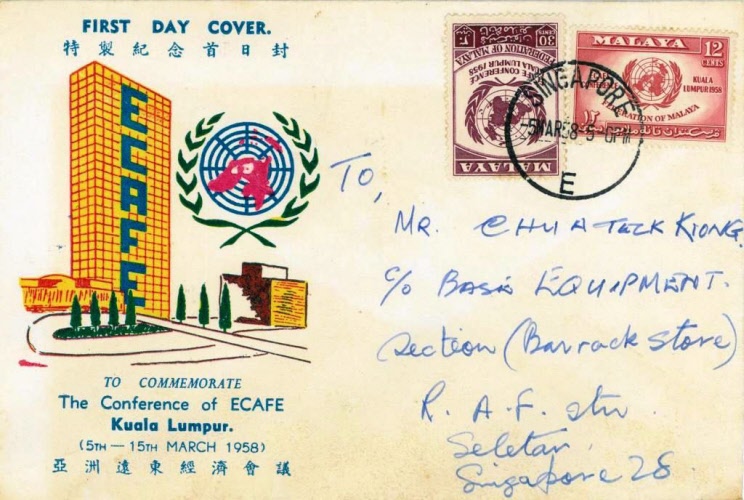 FIRST DAY COVER.
特製紀念首日封
ECAFE
TO COMMEMORATE
The Conference of ECAFE
Kuala Lumpur.
(5TH — 15TH MARCH 1958)
亞洲遠東經濟會議
30 CENTS
FEDERATION OF MALAYA
ECAFE CONFERENCE
KUALA LUMPUR 1958
MALAYA
MALAYA
12 CENTS
CONFERENCE
KUALA LUMPUR 1958
FEDERATION OF MALAYA
SINGAPORE
5 MAR 58-5
E
To,
MR. CHUA TECK KIONG.
c/o BASE EQUIPMENT.
Section (Barrack Store)
R. A. F. stn.
Seletar.
Singapore 28.